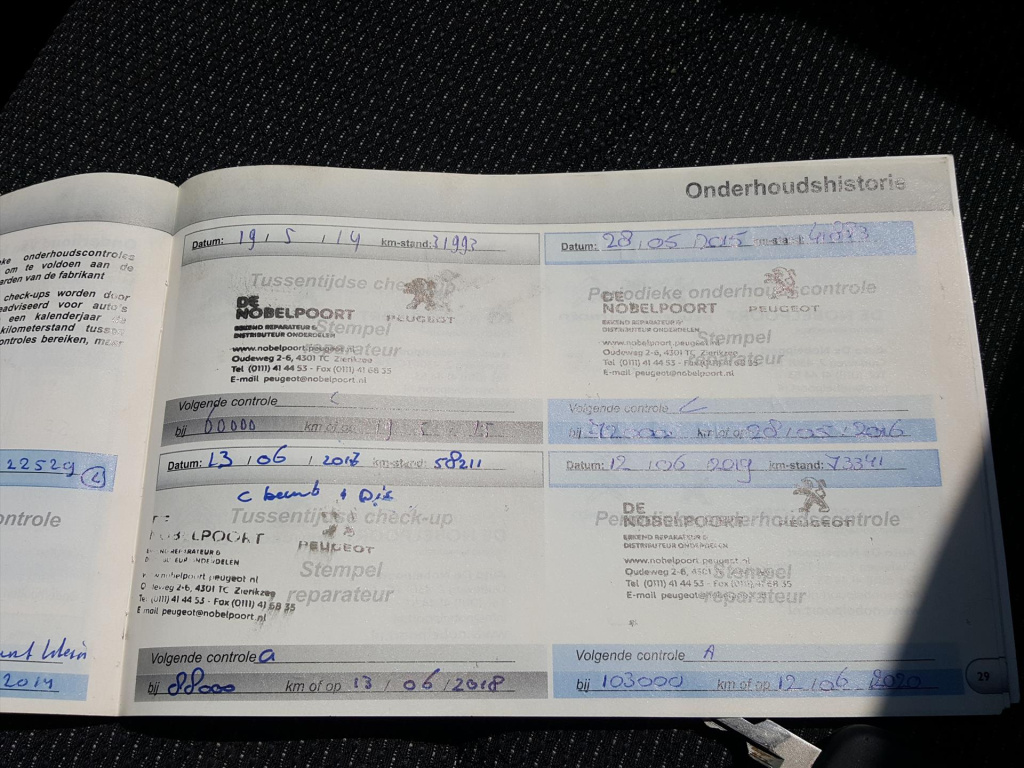 Onderhoudshistorie
eke onderhoudscontroles
om te voldoen aan de
arden van de fabrikant
check-ups worden door
eadviseerd voor auto's
een kalenderjaar
kilometerstand tussen
ontroles bereiken, maar
22529
ontrole
2014
Datum: 19 / 5 / 14 km-stand: 31993
Tussentijdse check-up
DE
NOBELPOORT
PEUGEOT
ERKEND REPARATEUR &
DISTRIBUTEUR ONDERDELEN
Stempel
reparateur
www.nobelpoort.peugeot.nl
Oudeweg 2-6, 4301 TC Zierikzee
Tel (0111) 41 44 53 - Fax (0111) 41 68 35
E-mail peugeot@nobelpoort.nl
Volgende controle C
bij 60000 km of op
Datum: 28 / 05 / 2015 km-stand:
Periodieke onderhoudscontrole
DE
NOBELPOORT
PEUGEOT
ERKEND REPARATEUR &
DISTRIBUTEUR ONDERDELEN
Stempel
reparateur
www.nobelpoort.peugeot.nl
Oudeweg 2-6, 4301 TC Zierikzee
Tel (0111) 41 44 53 - Fax (0111) 41 68 35
E-mail peugeot@nobelpoort.nl
Volgende controle C
bij 72000 km of op 28 / 05 / 2016
Datum: 13 / 06 / 2017 km-stand: 58211
C beurt + Dis
Tussentijdse check-up
NOBELPOORT
PEUGEOT
Stempel
reparateur
nobelpoort peugeot nl
Oudeweg 2-6, 4301 TC Zierikzee
Tel (0111) 41 44 53 - Fax (0111) 41 68 35
E-mail peugeot@nobelpoort.nl
Volgende controle a
bij 88000 km of op 13 / 06 / 2018
Datum: 12 / 06 2019 km-stand: 73341
Periodieke onderhoudscontrole
DE
NOBELPOORT
PEUGEOT
ERKEND REPARATEUR &
DISTRIBUTEUR ONDERDELEN
Stempel
reparateur
www.nobelpoort.peugeot.nl
Oudeweg 2-6, 4301 TC Zierikzee
Tel (0111) 41 44 53 - Fax (0111) 41 68 35
E-mail peugeot@nobelpoort.nl
Volgende controle A
bij 103000 km of op 12 / 06 / 2020
29